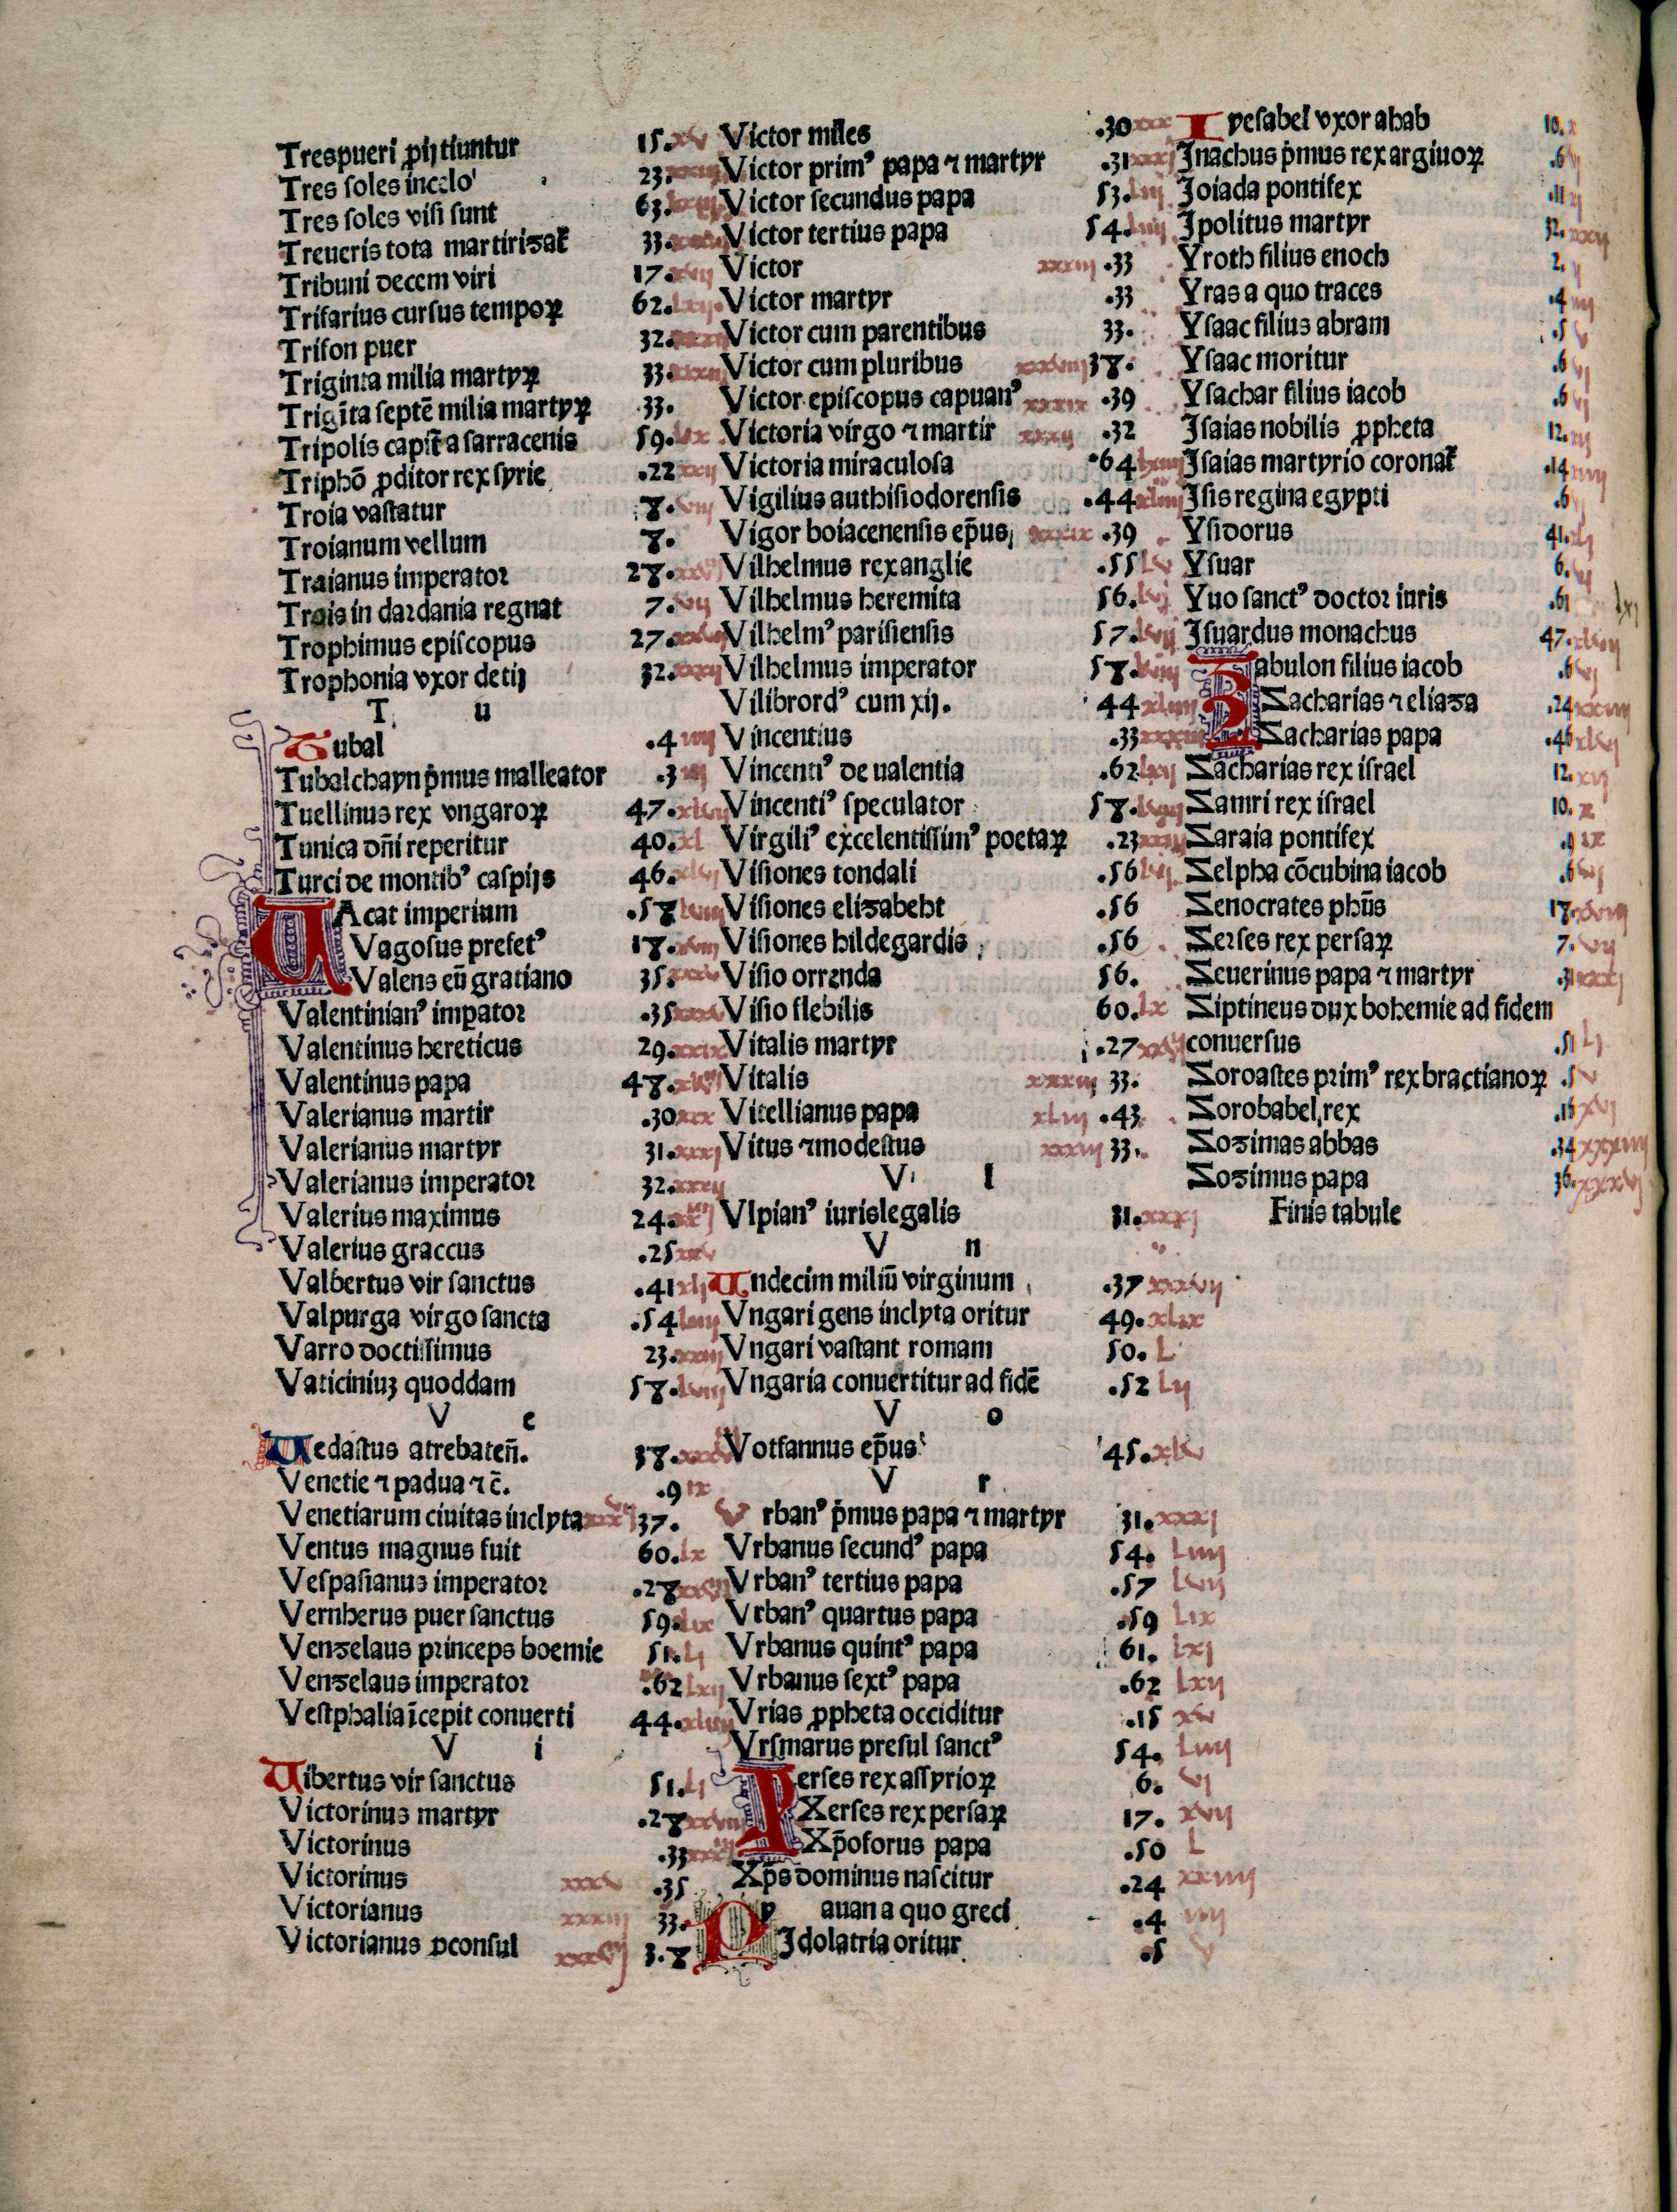 Trespueri ꝓijtiuntur 15. xv
Tres soles incelo 23. xxiij
Tres soles visi sunt 63. lxiij
Treueris tota martirisat̄ 33. xxxiij
Tribuni decem viri 17. xvij
Trifarius cursus tempoꝝ 62. lxij
Trifon puer 32. xxxij
Triginta milia martyꝝ 33. xxxiij
Trigīta septē milia martyꝝ 33.
Tripolis capit̄ a sarracenis 59. lix
Triphō ꝓditor rex syrie .22 xxij
Troia vastatur 8. viij
Troianum vellum 8.
Traianus imperator 28.
Trois in dardania regnat 7. vij
Trophimus episcopus 27. xxvij
Trophonia vxor detij 32. xxxij
T u
Tubal .4 iiij
Tubalchayn p̄mus malleator .3 iij
Tuellinus rex vngaroꝝ 47. xlvij
Tunica dn̄i reperitur 40. xl
Turci de montibꝰ caspijs 46. xlvj
VAcat imperium .58 lviij
Vagosus prefetꝰ 18. xviij
Valens eū gratiano 35. xxxv
Valentinianꝰ impator .35 xxxv
Valentinus hereticus 29. xxix
Valentinus papa 48.
Valerianus martir .30 xxx
Valerianus martyr 31. xxxj
Valerianus imperator 32. xxxij
Valerius maximus 24.
Valerius graccus .25 xxv
Valbertus vir sanctus .41 xlj
Valpurga virgo sancta .54 liiij
Varro doctissimus 23. xxiij
Vaticiniuꝫ quoddam 58. lviij
V e
Vedastus atrebaten̄. 38.
Venetie ⁊ padua ⁊ c̄. .9 ix
Venetiarum ciuitas inclyta 37.
Ventus magnus fuit 60. lx
Vespasianus imperator .28
Vernherus puer sanctus 59. lix
Venzelaus princeps boemie 51. lj
Venzelaus imperator .62 lxij
Vestphalia īcepit conuerti 44. xliiij
V i
Vibertus vir sanctus 51. lj
Victorinus martyr .28 xxviij
Victorinus .33
Victorinus xxxv .35
Victorianus xxxiij 33.
Victorianus ꝓconsul 3.8
Victor miles .30 xxx
Victor primꝰ papa ⁊ martyr .31 xxxj
Victor secundus papa 53. liij
Victor tertius papa 54. liiij
Victor xxxiij .33
Victor martyr .33
Victor cum parentibus 33.
Victor cum pluribus xxxviij 38.
Victor episcopus capuanꝰ xxxix .39
Victoria virgo ⁊ martir xxxij .32
Victoria miraculosa .64 lxiiij
Vigilius authisiodorensis .44 xliiij
Vigor boiacenensis ep̄us xxxix .39
Vilhelmus rex anglie .55 lv
Vilhelmus heremita 56. lvj
Vilhelmꝰ parisiensis 57. lvij
Vilhelmus imperator 58. lviij
Vilibrordꝰ cum xij. 44 xliiij
Vincentius .33 xxxiij
Vincentiꝰ de ualentia .62 lxij
Vincentiꝰ speculator 58. lviij
Virgiliꝰ excelentissimꝰ poetaꝝ .23 xxiij
Visiones tondali .56 lvj
Visiones elizabeht .56
Visiones hildegardis .56
Visio orrenda 56.
Visio flebilis 60. lx
Vitalis martyr .27 xxvij
Vitalis xxxiij 33.
Vitellianus papa xliij .43
Vitus ⁊modestus xxxiij 33.
V l
Vlpianꝰ iurislegalis 31. xxxj
V n
Vndecim miliū virginum .37 xxxvij
Vngari gens inclyta oritur 49. xlix
Vngari vastant romam 50. L
Vngaria conuertitur ad fidē .52 Lij
V o
Votfannus ep̄us 45. xlv
V r
Vrbanꝰ p̄mus papa ⁊ martyr 31. xxxj
Vrbanus secundꝰ papa 54. Liiij
Vrbanꝰ tertius papa .57 Lvij
Vrbanꝰ quartus papa .59 Lix
Vrbanus quintꝰ papa 61. Lxj
Vrbanus sextꝰ papa .62 Lxij
Vrias ꝓpheta occiditur .15 xv
Vrsmarus presul sanctꝰ 54. Liiij
Xerses rex assyrioꝝ 6. vj
Xerses rex persaꝝ 17. xvij
Xp̄oforus papa .50 L
Xp̄s dominus nascitur .24 xxiiij
Y auan a quo greci .4 iiij
Idolatria oritur .5 v
I yesabel vxor ahab 10. x
Inachus p̄mus rex argiuoꝝ .6 vj
Ioiada pontifex .11 xj
Ipolitus martyr 32. xxxij
Yroth filius enoch 2. ij
Yras a quo traces .4 iiij
Ysaac filius abram .5 v
Ysaac moritur .6 vj
Ysachar filius iacob .6 vj
Isaias nobilis ꝓpheta 12. xij
Isaias martyrio coronat̄ .14 xiiij
Isis regina egypti .6
Ysidorus 41. xlj
Ysuar 6. vj
Yuo sanctꝰ doctor iuris .61 lxj
Isuardus monachus 47. xlvij
Zabulon filius iacob .6 vj
Zacharias ⁊ eliaza .24 xxiiij
Zacharias papa .46 xlvj
Zacharias rex israel 12. xij
Zamri rex israel 10. x
Zaraia pontifex .9 ix
Zelpha cōcubina iacob .6 vj
Zenocrates phūs 18. xviij
Zerses rex persaꝝ 7. vij
Zeuerinus papa ⁊ martyr .31 xxxj
Ziptineus dux bohemie ad fidem
conuersus .51 Lj
Zoroastes primꝰ rex bractianoꝝ .5 v
Zorobabel, rex .16 xvj
Zozimas abbas .34 xxxiiij
Zozimus papa 36. xxxvj
Finis tabule